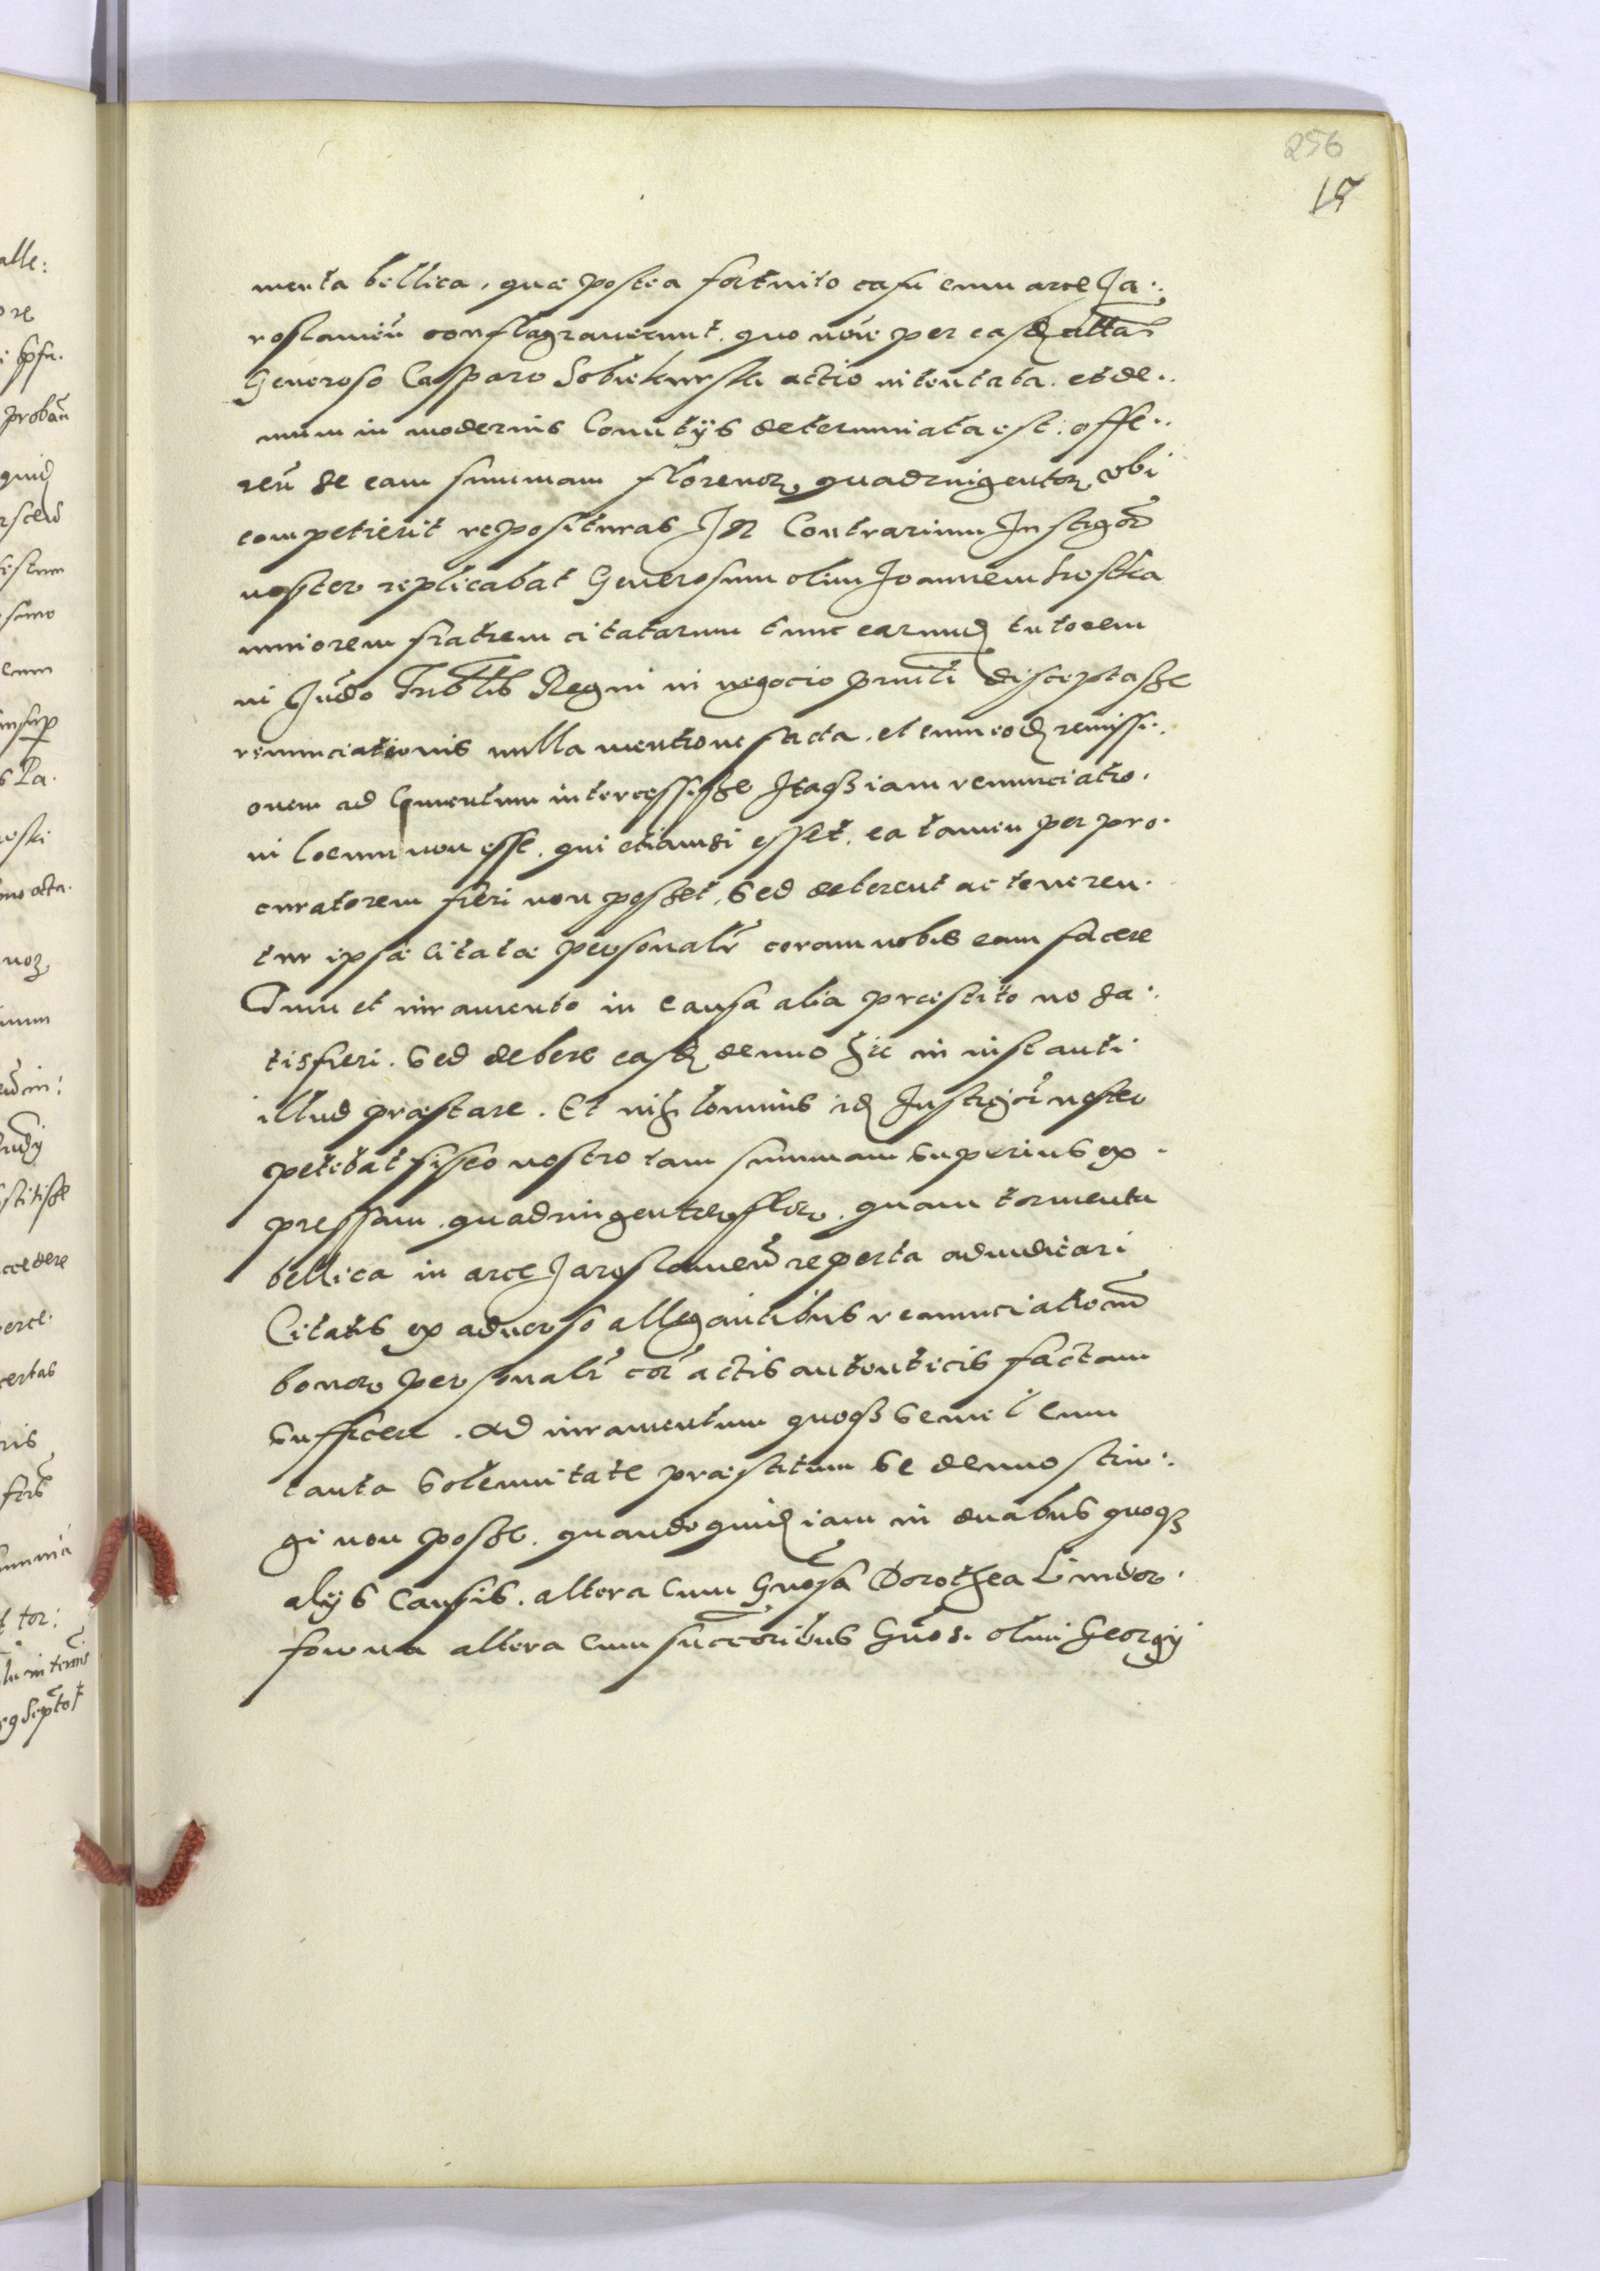 256
15
menta bellica, quæ postea fortuito casu cum arce Ja:
roslauien̄ conflagrauerunt. quo noīe per easd citatas
Generoso Casparo Sobiekurski actio intentata. et de:
mum in modernis Comitijs determinata est. offe:
ren̄ se eam summam florenor, quadringentor, vbi
competierit reposituras In Contrarium Instigōr
noster replicabat Generosum olim Joannem Kostka
iuniorem fratrem citatarum tunc earund tutorem
in Judo Trib̄lis Regni in negocio pn̄ti disceptasse
renunciationis nulla mentione facta. et cum eod remissi:
onem ad Conuentum intercessisse Itaq iam renunciatio.
ni locum non esse. qui etiamsi esset. ea tamen per pro.
curatorem fieri non posset. Sed deberent ac teneren.
tur ipsæ Citatæ personalr̄ coram nobis eam facere
Cum et iuramento in causa alia præstito no sa:
tisfieri. Sed debere easd denuo hic in instanti
illud præstare. Et nihilominus id Instigōr noster
petebat fisco nostro tam summam superius ex.
pressam quadringentor flor, quam tormenta
bellica in arce Jaroslauien̄ reperta adiudicari
Citatis ex aduerso allegantibus renunciationē
bonor personalr̄ cor̄ actis autenticis factam
sufficere. Ad iuramentum quoq semel cum
tanta solemnitate præstitum se denuo strin:
gi non posse. quandoquid iam in duabus quoq
alijs causis. altera cum Gn̄osa Dorothea
altera cum succ̄oribus Gn̄os. olim Georgij